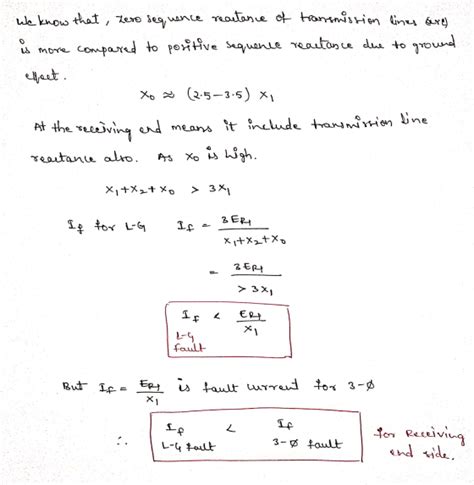 We know that, zero sequence reactance of transmission lines (are)
is more compared to positive sequence reactance due to ground
effect.
X₀ ≈ (2.5-3.5) X₁
At the receiving end means it include transmission line
reactance also. As X₀ is high.
X₁+X₂+X₀ > 3X₁
If for L-G If = 3ER1 / X₁+X₂+X₀
= 3ER1 / > 3X₁
If L-G fault < ER1 / X₁
But If = ER1 / X₁ is fault current for 3-Ø
∴ If L-G fault < If 3-Ø fault
for Receiving
end side.